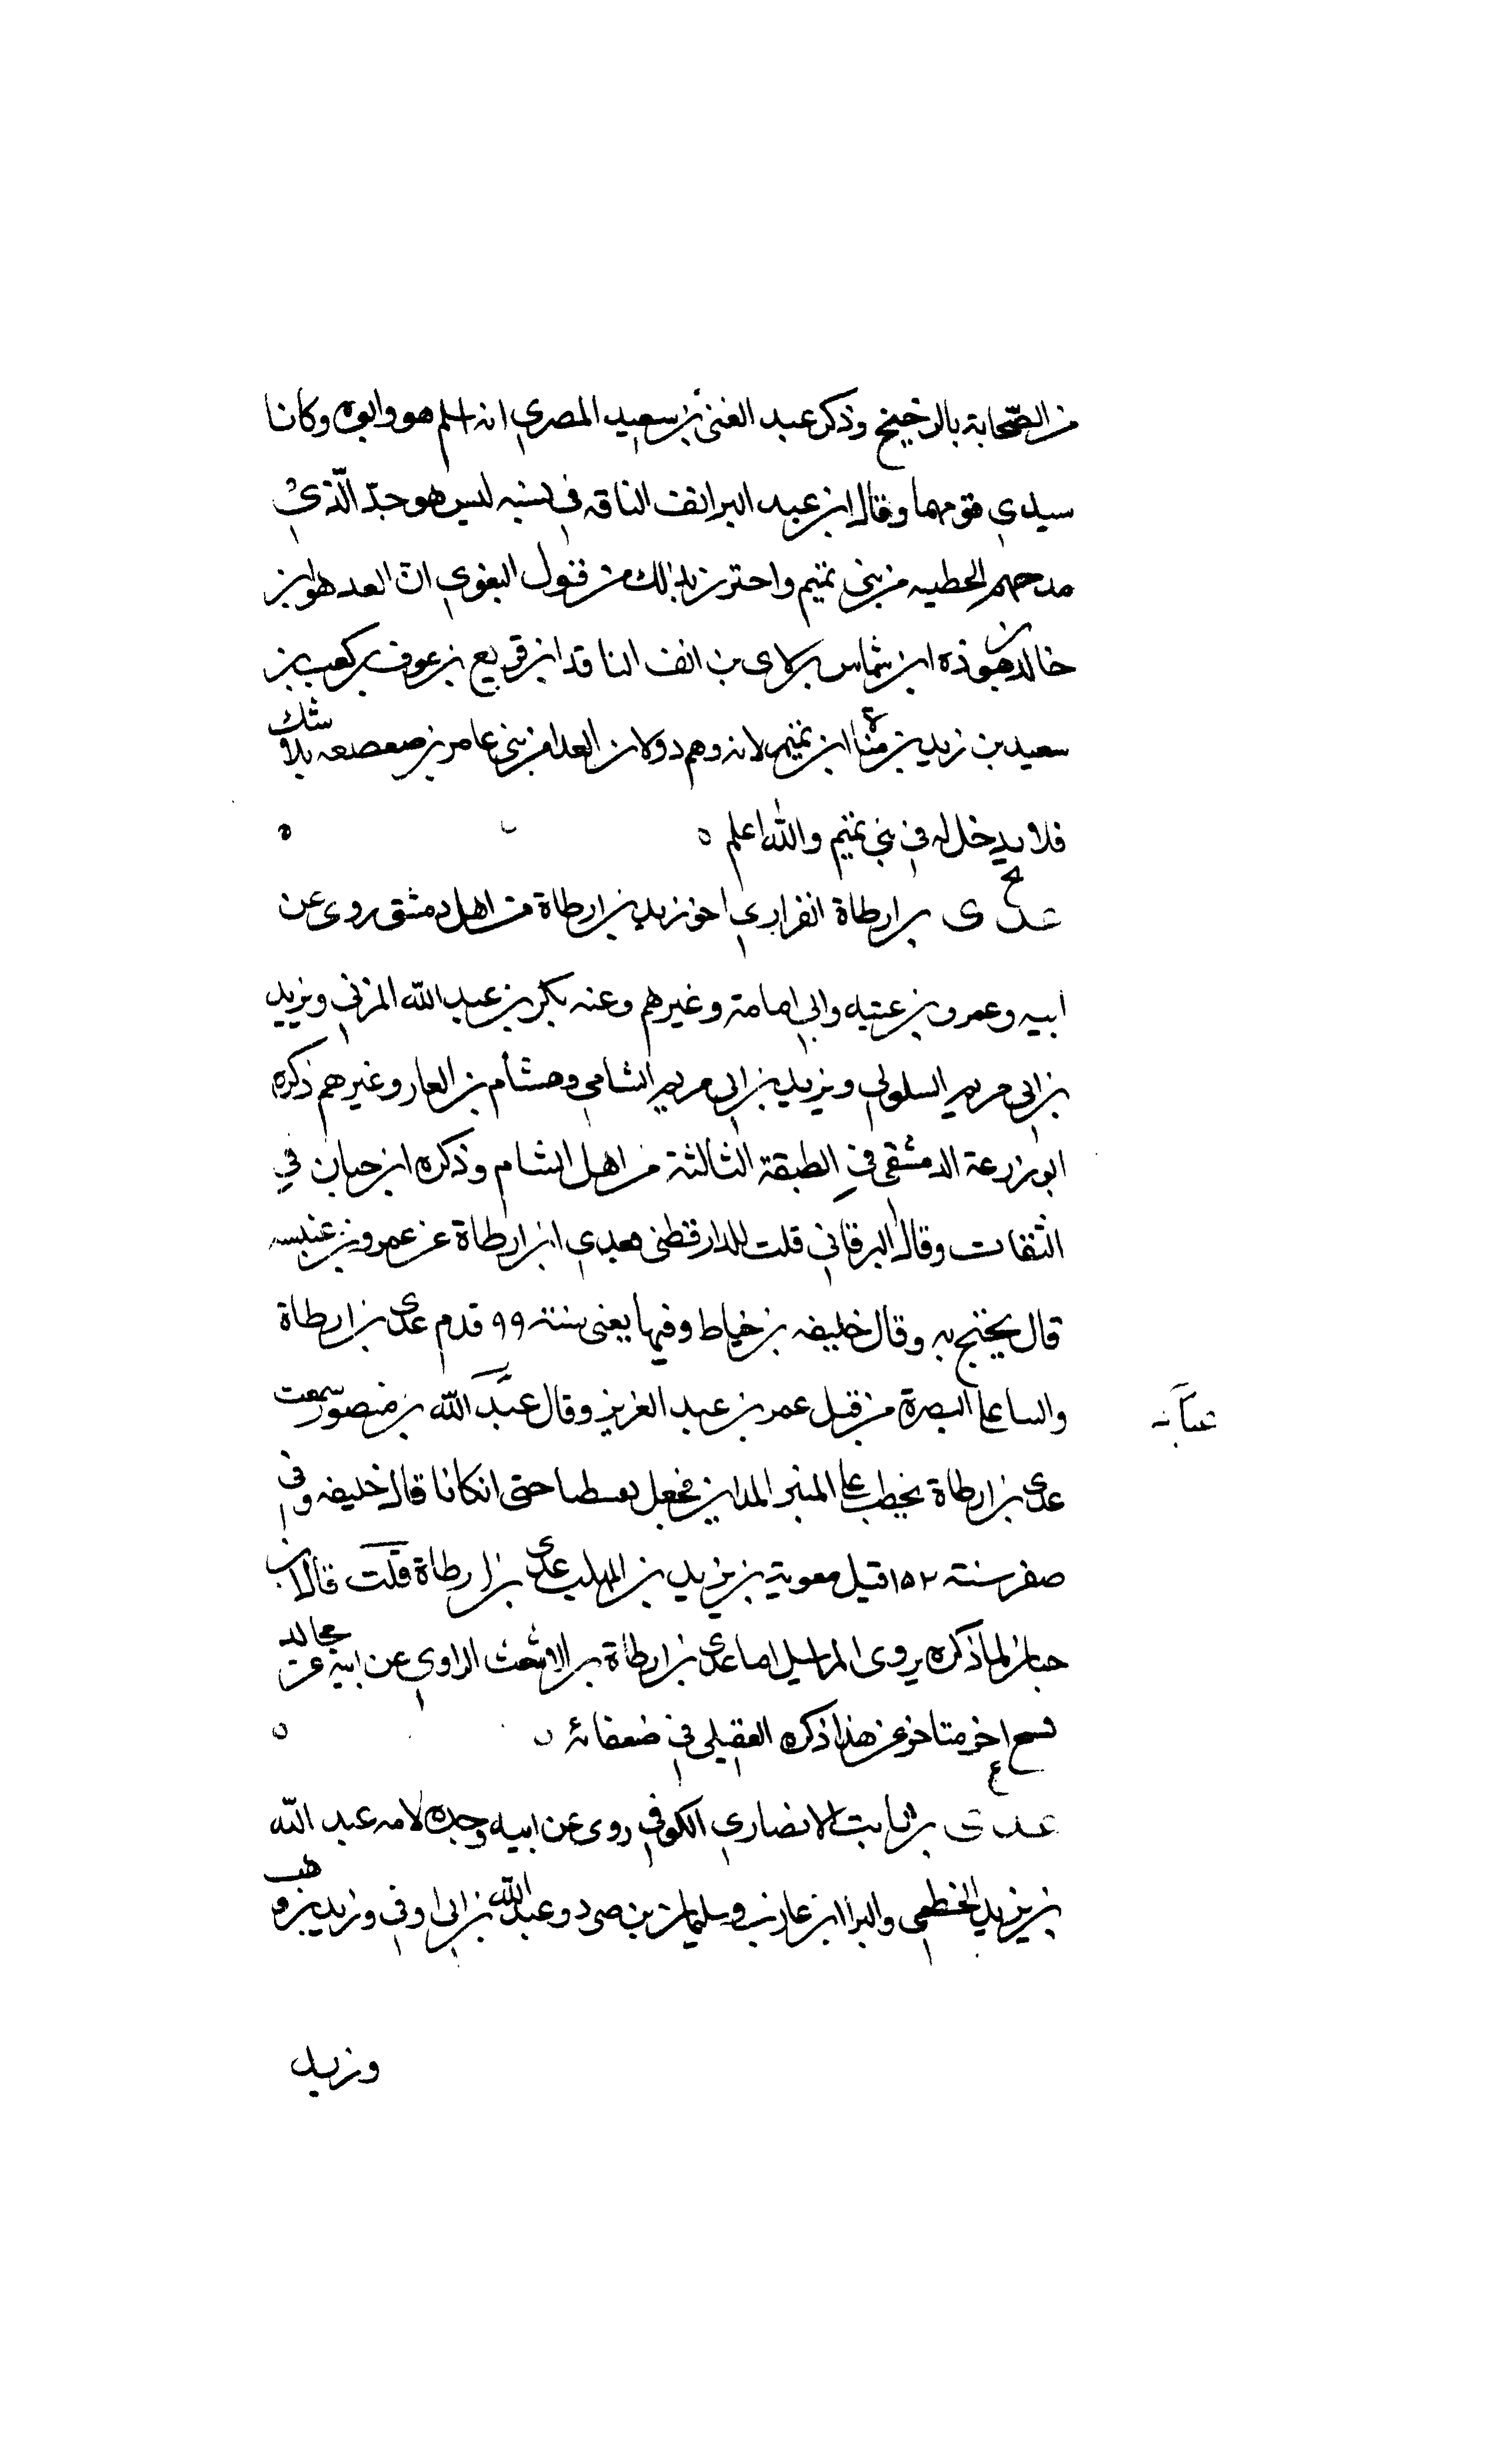 من الصحابة بالرخيخ وذكر عبد الغني بن سعيد المصري انه اسلم هو وابوه وكانا
سيدي قومهما وقال ابن عبد البر انف الناقه في نسبه ليس هو جد الذي
مدحهم الحطيه من بني تميم واحترز بذلك من قول البغوي ان العد هو ابن
خالد بن هوذه ابن شماس بن لاى بن انف الناقه ابن قريع بن عوف بن كعب بن
سعيد بن زيد بن مناة ابن تميم لانه وهم دولان العدا من بني عامر بن صعصعه بلا شك
فلا يدخل له في بني تميم والله اعلم
عدى بن ارطاة الفزاري اخو زيد بن ارطاة من اهل دمشق روى عن
ابيه وعمرو بن عتبه وابي امامة وغيرهم وعنه بكر بن عبد الله المزني ويزيد
بن ابي مريم السلولي ويزيد بن ابي مريم الشامي وهشام بن العار وغيرهم ذكره
ابو زرعة الدمشقي في الطبقة الثالثة من اهل الشام وذكره ابن حبان في
الثقات وقال البرقاني قلت للدارقطني فعدي ابن ارطاة عن عمرو بن عنبسه
قال يحتج به وقال خليفه بن خياط وفيها يعني سنة ٩٩ قدم عدى بن ارطاة
والسا على البصرة من قبل عمر بن عبد العزيز وقال عبد الله بن منصور سمعت
عدى بن ارطاة يخطب على المنبر المداين فجعل يعسطا حتى انكانا قال خليفه وفي
صفر سنة ١٥٢ قتل معوية بن يزيد بن المهلب عدى بن ارطاة قلت قال ابن
حبان لما ذكره يروى المراسيل اما عدى بن ارطاة بن الاشعث الراوي عن ابيه عن مجالد
فسح اخر متاخر عن هذا ذكره العقيلي في ضعفائه
ع
عدى بن ثابت الانصاري الكوفي روى عن ابيه وجده لامه عبد الله
بن يزيد الخطمي والبرا ابن عازب وسليمان بن صرد وعبد الله بن ابي اوفى وزيد بن وهب
وزيد